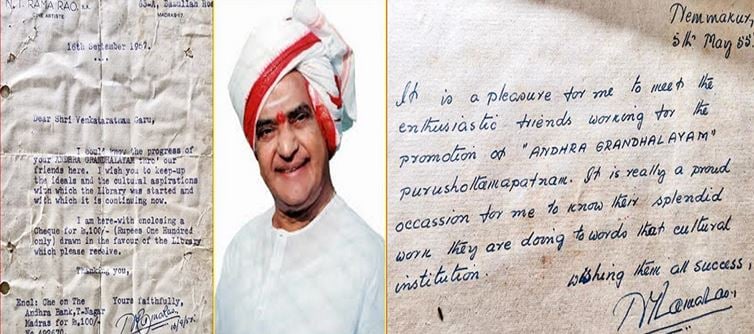 N.T. RAMA RAO, B.A.
CINE ARTISTE
MADRAS-17
16th September 1967.
....
Dear Shri Venkataratnam Garu,
I could know the progress of
your ANDHRA GRANDHALAYAM thro' our
friends here. I wish you to keep-up
the ideals and the cultural aspirations
with which the Library was started and
with which it is continuing now.
I am here-with enclosing a
Cheque for Rs.100/- (Rupees One Hundred
only) drawn in the favour of the Library
which please receive.
Thanking you,
Encl: Che on The
Andhra Bank, T-Nagar
Madras for Rs.100/-
Yours faithfully,
Nemmakur,
5th May 55
It is a pleasure for me to meet the
enthusiastic friends working for the
promotion of "ANDHRA GRANDHALAYAM"
purushottamapatnam. It is really a proud
occassion for me to know their splendid
work they are doing towords that cultural
institution.
wishing them all success,